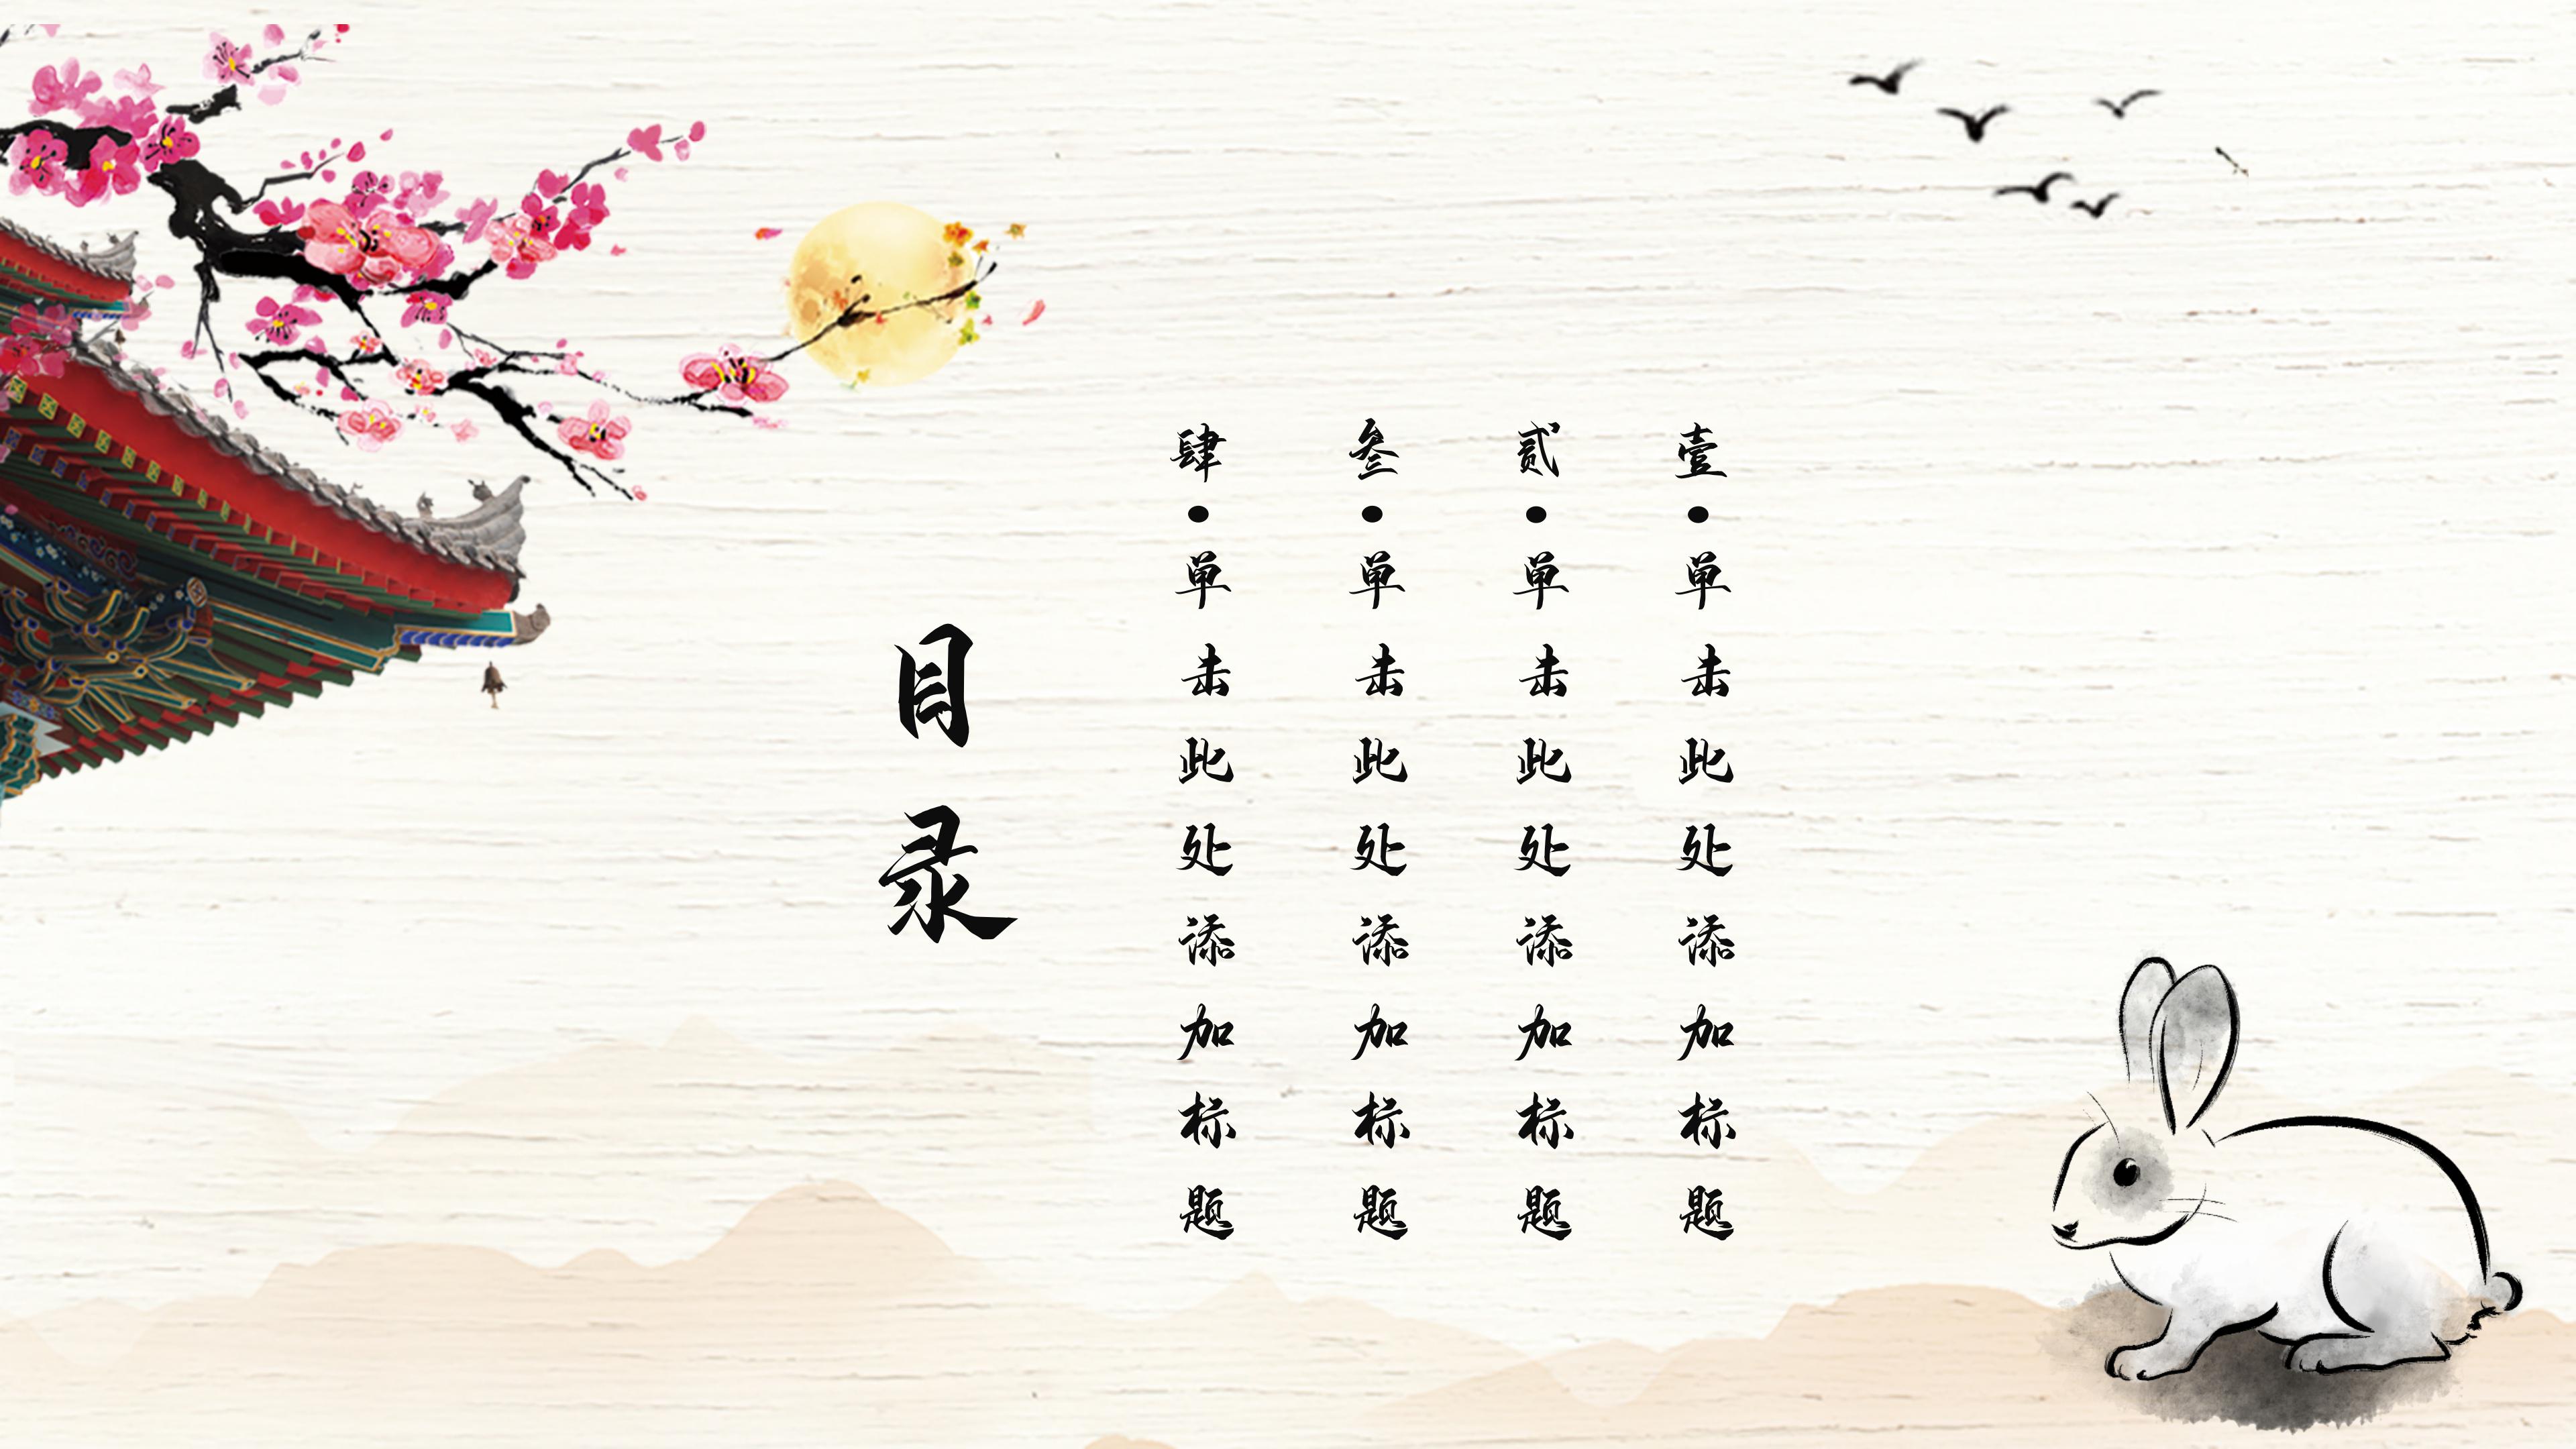 目录
壹·单击此处添加标题
贰·单击此处添加标题
叁·单击此处添加标题
肆·单击此处添加标题